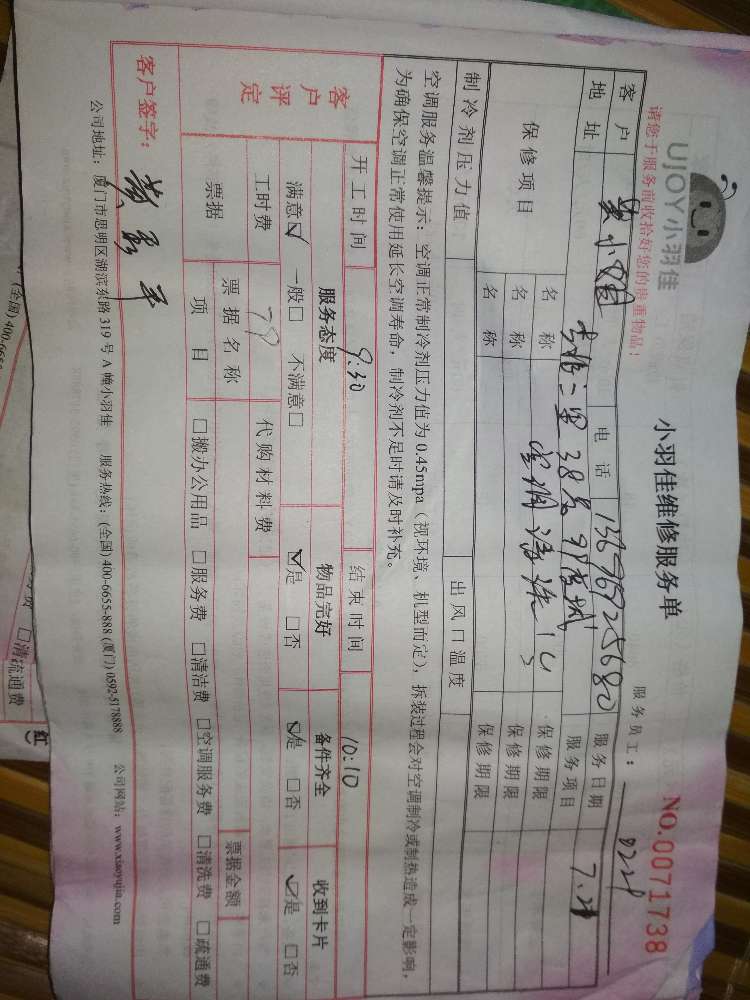 UJOY小羽佳
小羽佳维修服务单
NO.0071738
请您于服务前收拾好您的贵重物品！
服务员工：
客户
电话
13696925680
服务日期
7.29
地址
服务项目
保修项目
名称
空调清洗
保修期限
名称
保修期限
名称
保修期限
制冷剂压力值
出风口温度
空调服务温馨提示：空调正常制冷剂压力值为0.45mpa（视环境、机型而定），拆装过程会对空调制冷或制热造成一定影响，
为确保空调正常使用延长空调寿命，制冷剂不足时请及时补充。
客户评定
开工时间 9:30 结束时间 10:10
服务态度 物品完好 备件齐全 收到卡片
满意☑ 一般□ 不满意□ ☑是 □否 ☑是 □否 ☑是 □否
工时费 79 代购材料费
票据 票据名称 票据金额
项目 □搬办公用品 □服务费 □清洁费 □空调服务费 □清洗费 □疏通费
客户签字：
公司地址：厦门市思明区湖滨东路319号A幢小羽佳 服务热线：(全国) 400-6655-888 (厦门) 0592-5178888 公司网站：www.xiaoyujia.com
(全国) 400-665
□清 流通费
红